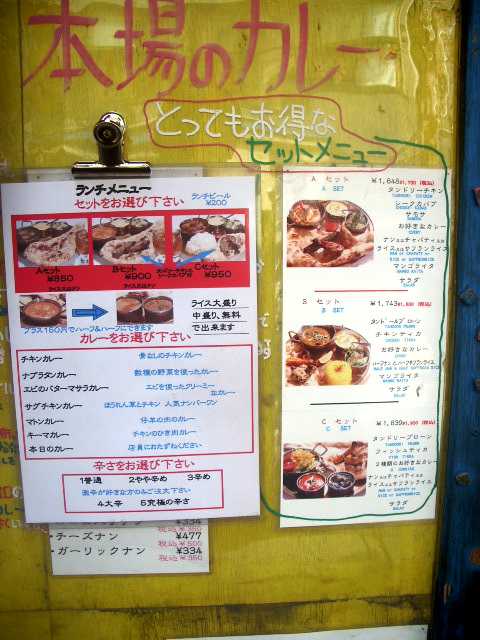 本場のカレー
とってもお得な
セットメニュー
ランチメニュー
セットをお選び下さい
ランチビール
¥200
Aセット
¥850
Bセット
¥900
Cセット
¥950
プラス160円でハーフ&ハーフにできます
ライス大盛り
中盛り、無料
で出来ます
カレーをお選び下さい
チキンカレー 骨なしのチキンカレー
ナブラタンカレー 数種の野菜を使ったカレー
エビのバターマサラカレー エビを使ったクリーミーなカレー
サグチキンカレー ほうれん草とチキン 人気ナンバーワン
マトンカレー 仔羊の肉のカレー
キーマカレー チキンのひき肉カレー
本日のカレー 店員におたずねください
辛さをお選び下さい
1普通 2やや辛め 3辛め
激辛が好きな方のみご注文下さい
4大辛 5究極の辛さ
・チーズナン ¥477
税込¥500
・ガーリックナン ¥334
税込¥350
Aセット ¥1,648
A SET
タンドリーチキン
シークカバブ
サモサ
お好きなカレー
ナン又はチャパティ又は
ライス又はサフランライス
マンゴライタ
サラダ
SALAD
Bセット ¥1,743
B SET
タンドールプローン
チキンティカ
お好きなカレー
ハーフナンとハーフサフランライス
マンゴライタ
サラダ
SALAD
Cセット ¥1,839
C SET
タンドリープローン
フィッシュティカ
2種類のお好きなカレー
ナン又はチャパティ又は
ライス又はサフランライス
サラダ
SALAD